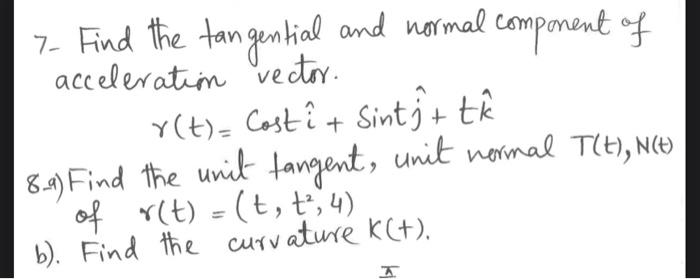 7- Find the tangential and normal component of
acceleration vector.
r(t) = Cost î + Sint ĵ + t k̂
8-a) Find the unit tangent, unit normal T(t), N(t)
of r(t) = (t, t², 4)
b). Find the curvature K(t).